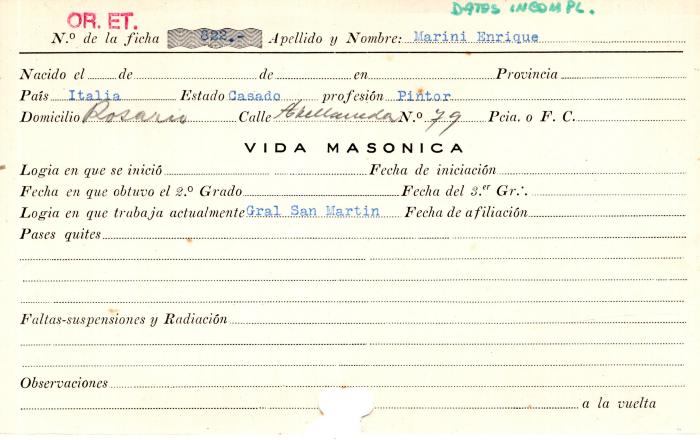 DATOS INCOMPL.
OR. ET.
N.º de la ficha 822.- Apellido y Nombre: Marini Enrique
Nacido el de de en Provincia
País Italia Estado Casado profesión Pintor
Domicilio Rosario Calle Avellaneda N.º 79 Pcia. o F. C.
VIDA MASONICA
Logia en que se inició Fecha de iniciación
Fecha en que obtuvo el 2.º Grado Fecha del 3.er Gr∴
Logia en que trabaja actualmente Gral San Martin Fecha de afiliación
Pases quites
Faltas-suspensiones y Radiación
Observaciones
a la vuelta